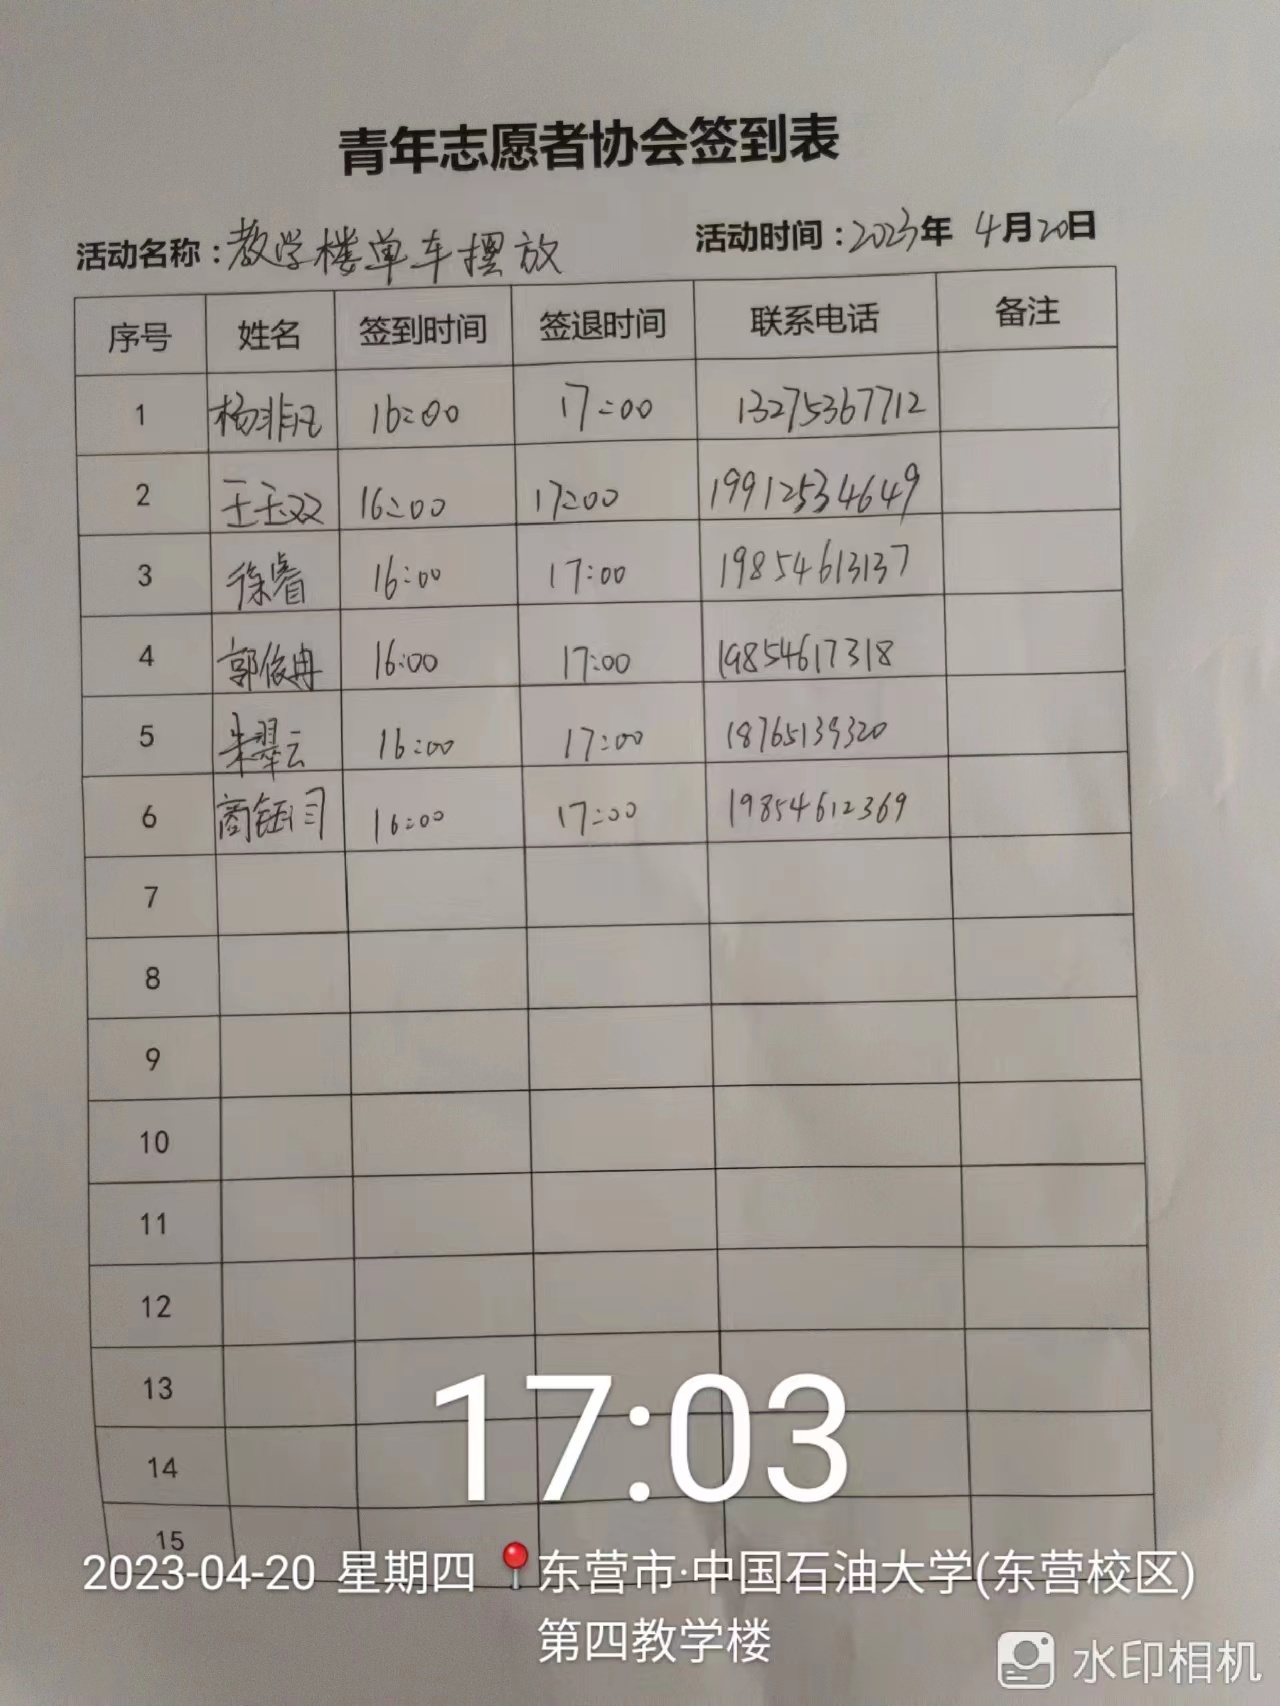 青年志愿者协会签到表
活动名称：教学楼单车摆放 活动时间：2023年 4月20日
序号 姓名 签到时间 签退时间 联系电话 备注
1 杨非凡 16:00 17:00 13275367712
2 王玉双 16:00 17:00 19912534649
3 徐睿 16:00 17:00 19854613137
4 郭俊冉 16:00 17:00 19854617318
5 朱翠云 16:00 17:00 18765139320
6 16:00 17:00 19854612369
7
8
9
10
11
12
13
14
15
17:03
2023-04-20 星期四 东营市·中国石油大学(东营校区)
第四教学楼
水印相机